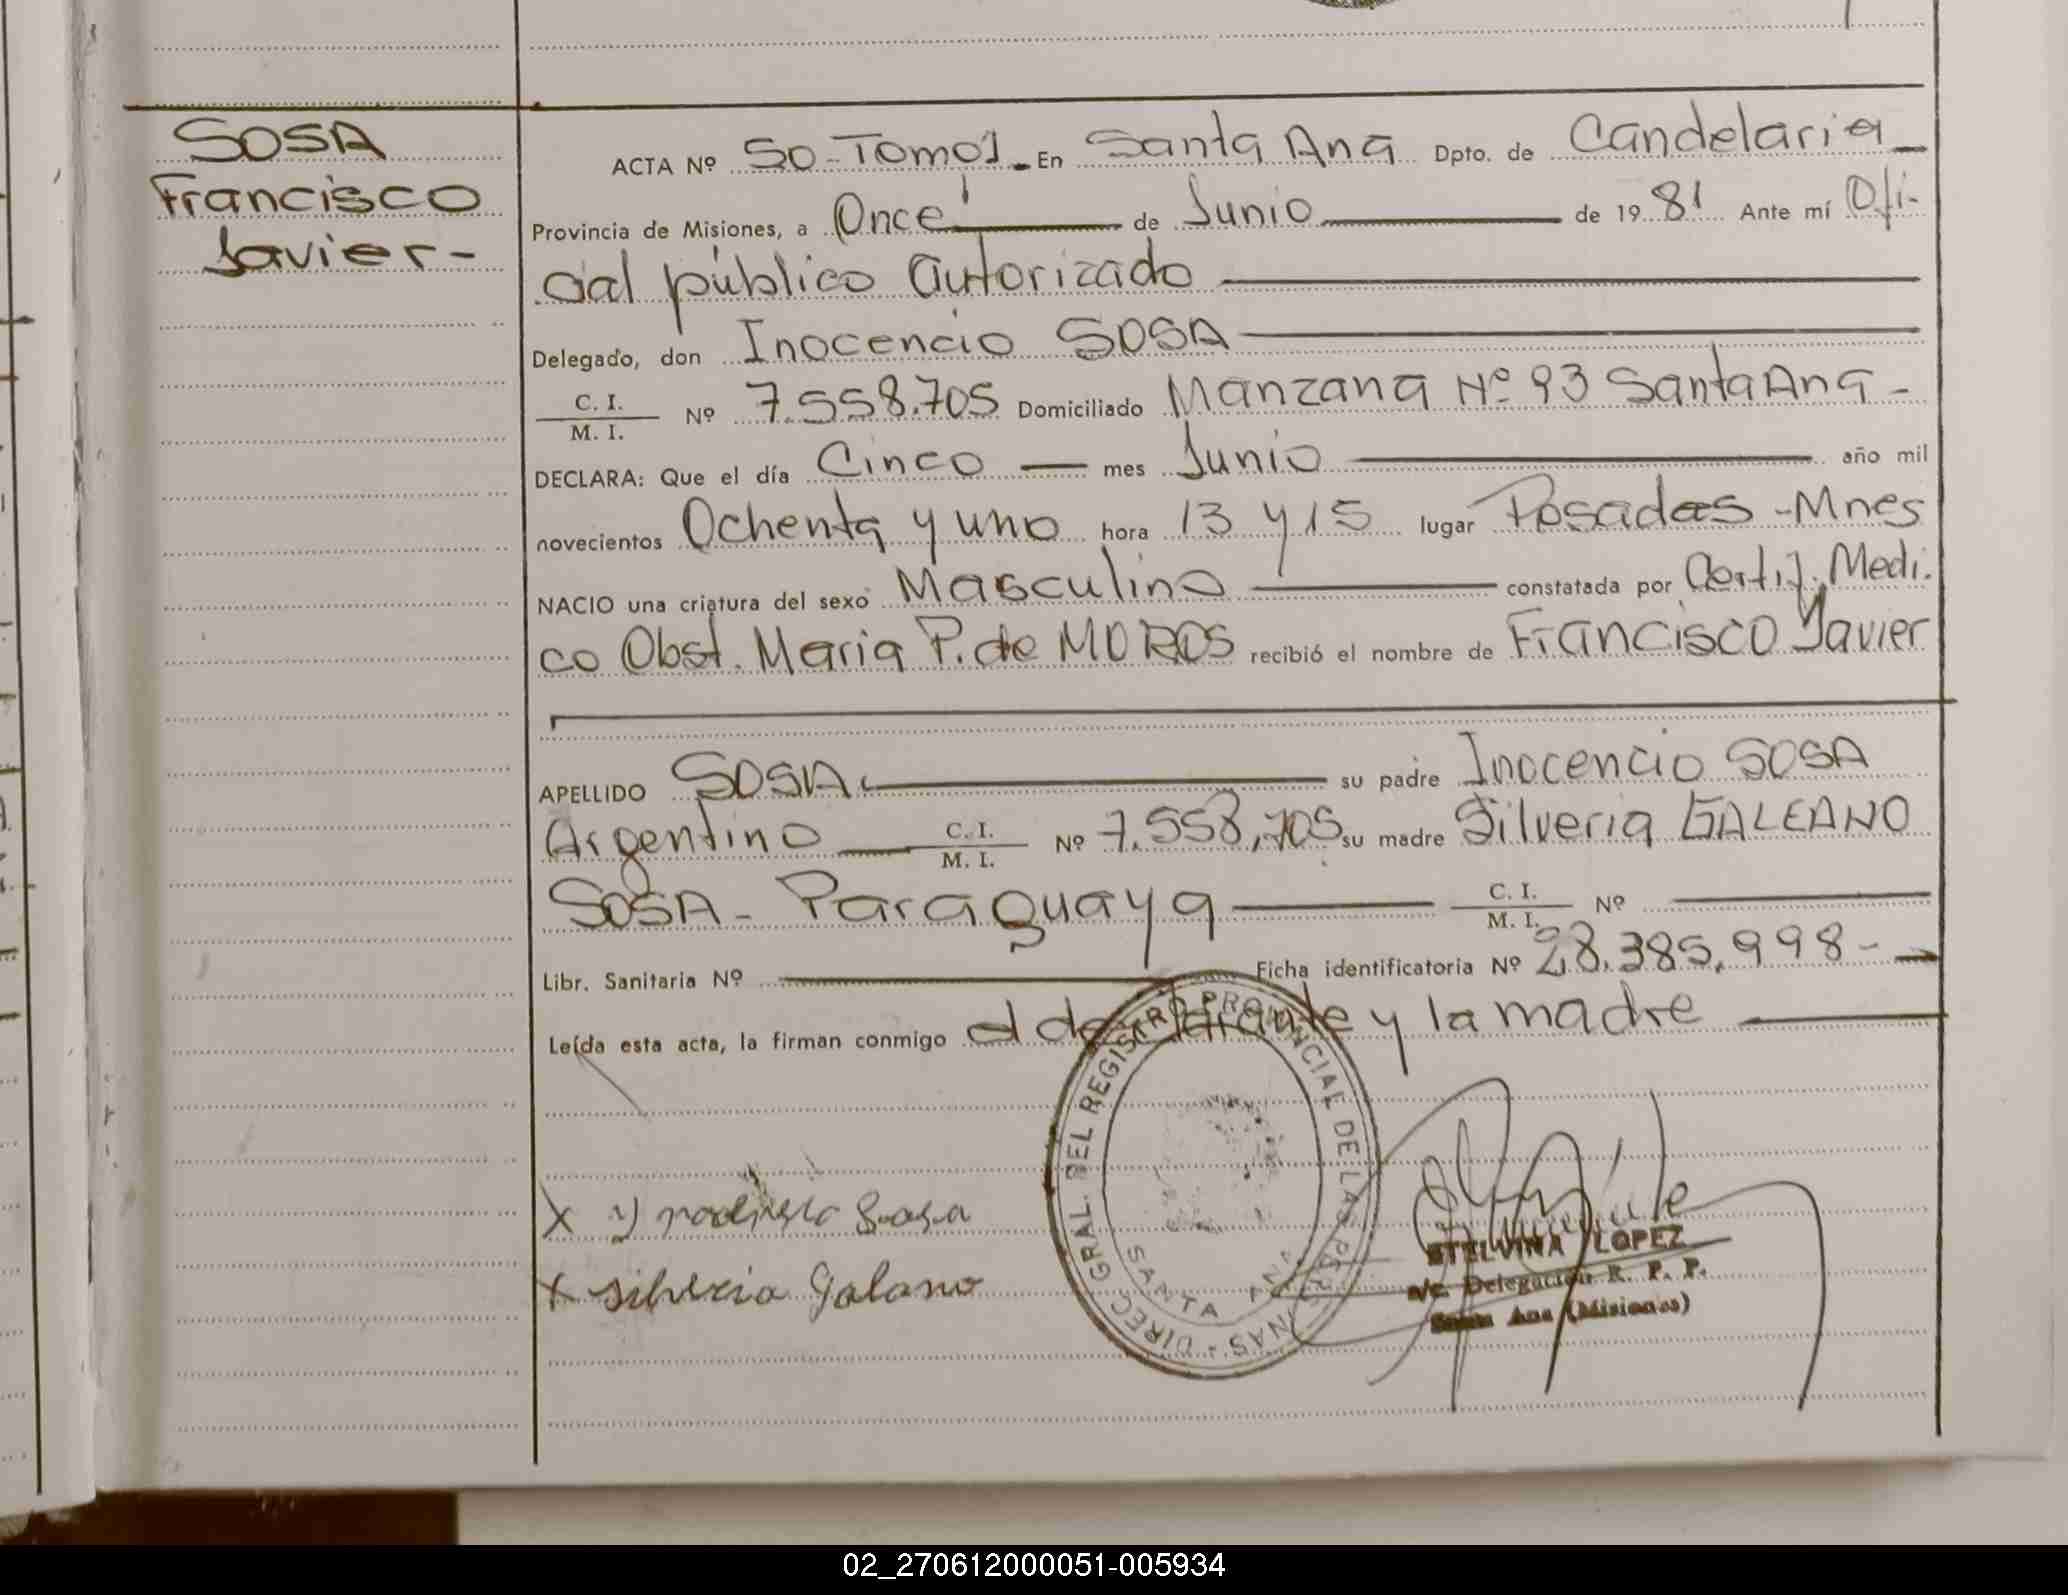 SOSA
Francisco
Javier-
ACTA Nº 50-Tomo 1- En Santa Ana Dpto. de Candelaria
Provincia de Misiones, a Once de Junio de 1981 Ante mí Ofi-
cial público autorizado
Delegado, don Inocencio SOSA
C. I. / M. I. Nº 7.558.705 Domiciliado Manzana Nº 93 Santa Ana-
DECLARA: Que el día Cinco mes Junio año mil
novecientos Ochenta y uno hora 13 y 15 lugar Posadas-Mnes
NACIO una criatura del sexo Masculino constatada por Certif. Medi.
co Obst. Maria P. de MOROS recibió el nombre de Francisco Javier
APELLIDO SOSA su padre Inocencio SOSA
Argentino C. I. / M. I. Nº 7.558.705 su madre Silveria GALEANO
SOSA- Paraguaya C. I. / M. I. Nº
Libr. Sanitaria Nº Ficha identificatoria Nº 28.385.998-
Leída esta acta, la firman conmigo el declarante y la madre
DIREC. GRAL. DEL REGISTRO PROVINCIAL DE LAS PERSONAS
SANTA ANA
X Sosa
X silveria galano
ETELVINA LOPEZ
a/c. Delegación R. P. P.
Santa Ana (Misiones)
02_270612000051-005934